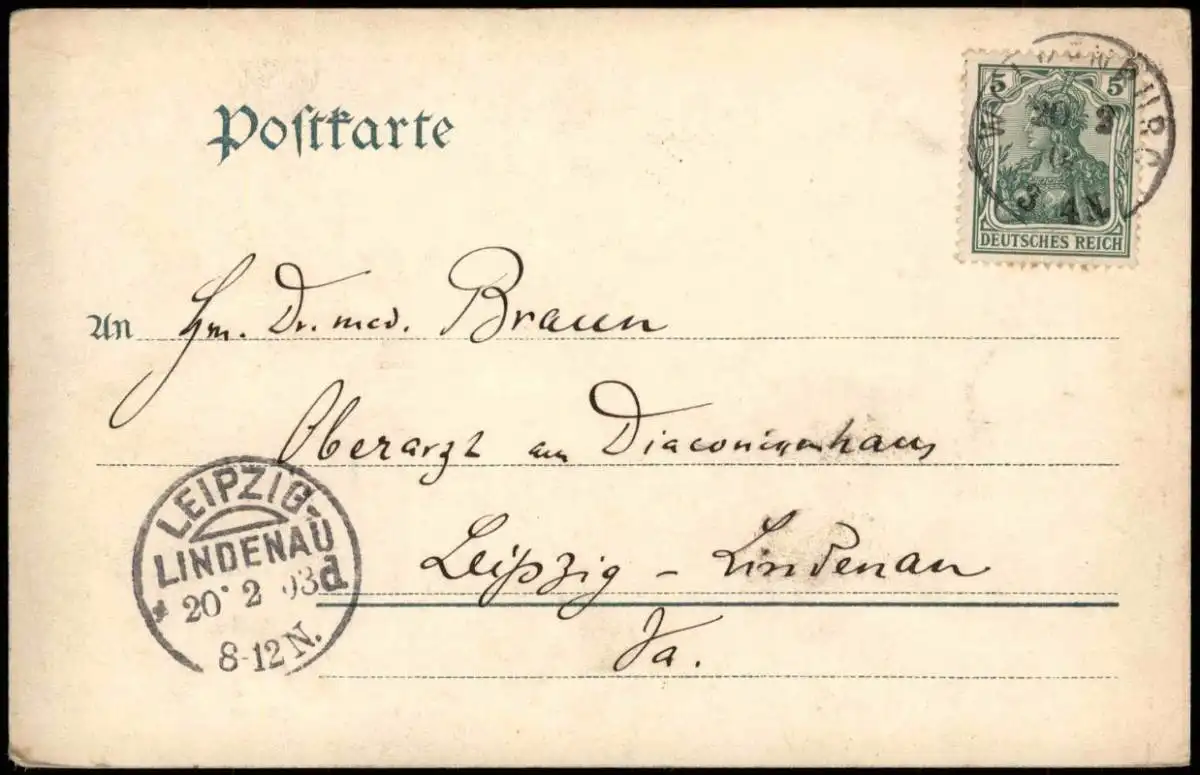 Postkarte
5 5
20 2
3-4 N
DEUTSCHES REICH
An Hrn. Dr. med. Braun
Oberarzt am Diaconissenhaus
Leipzig - Lindenau
LEIPZIG-
LINDENAU
* 20. 2 03 d
8-12 N.